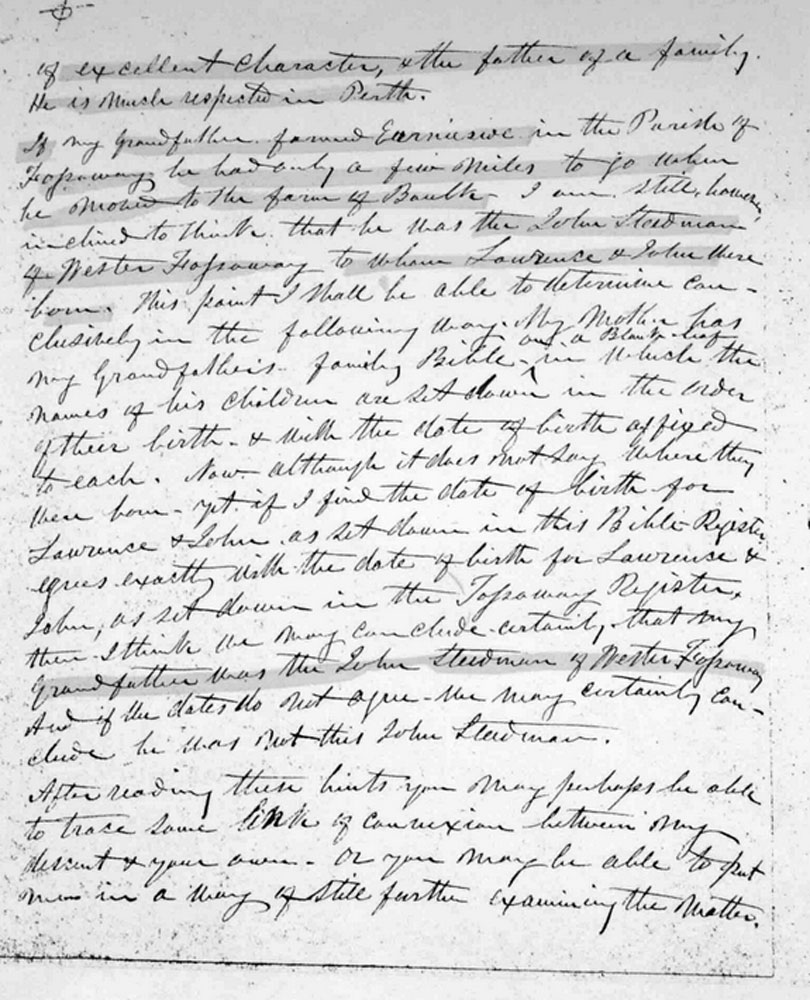 of excellent character, & the father of a family.
He is much respected in Perth.
If my Grandfather farmed in the Parish of
Fossoway he had only a few miles to go when
he moved to the farm of Baulk - I am still, however,
inclined to think that he was the John Steedman
of Wester Fossoway to whom Lawrence & John were
born. This point I shall be able to determine con-
clusively in the following way. My Mother has
on a Blank leaf
my Grandfather's family Bible - in which the
names of his children are set down in the order
of their birth - & with the date of birth affixed
to each. Now although it does not say where they
were born - yet if I find the date of birth for
Lawrence & John as set down in this Bible Register
agrees exactly with the date of birth for Lawrence &
John, as set down in the Fossoway Register,
then I think we may conclude certainly, that my
Grandfather was the John Steedman of Wester Fossoway
And if the dates do not agree - we may certainly con-
clude he was not this John Steedman.
After reading these hints you may perhaps be able
to trace some link of connexion between my
descent & your own - Or you may be able to put
me in a way of still further examining the matter.